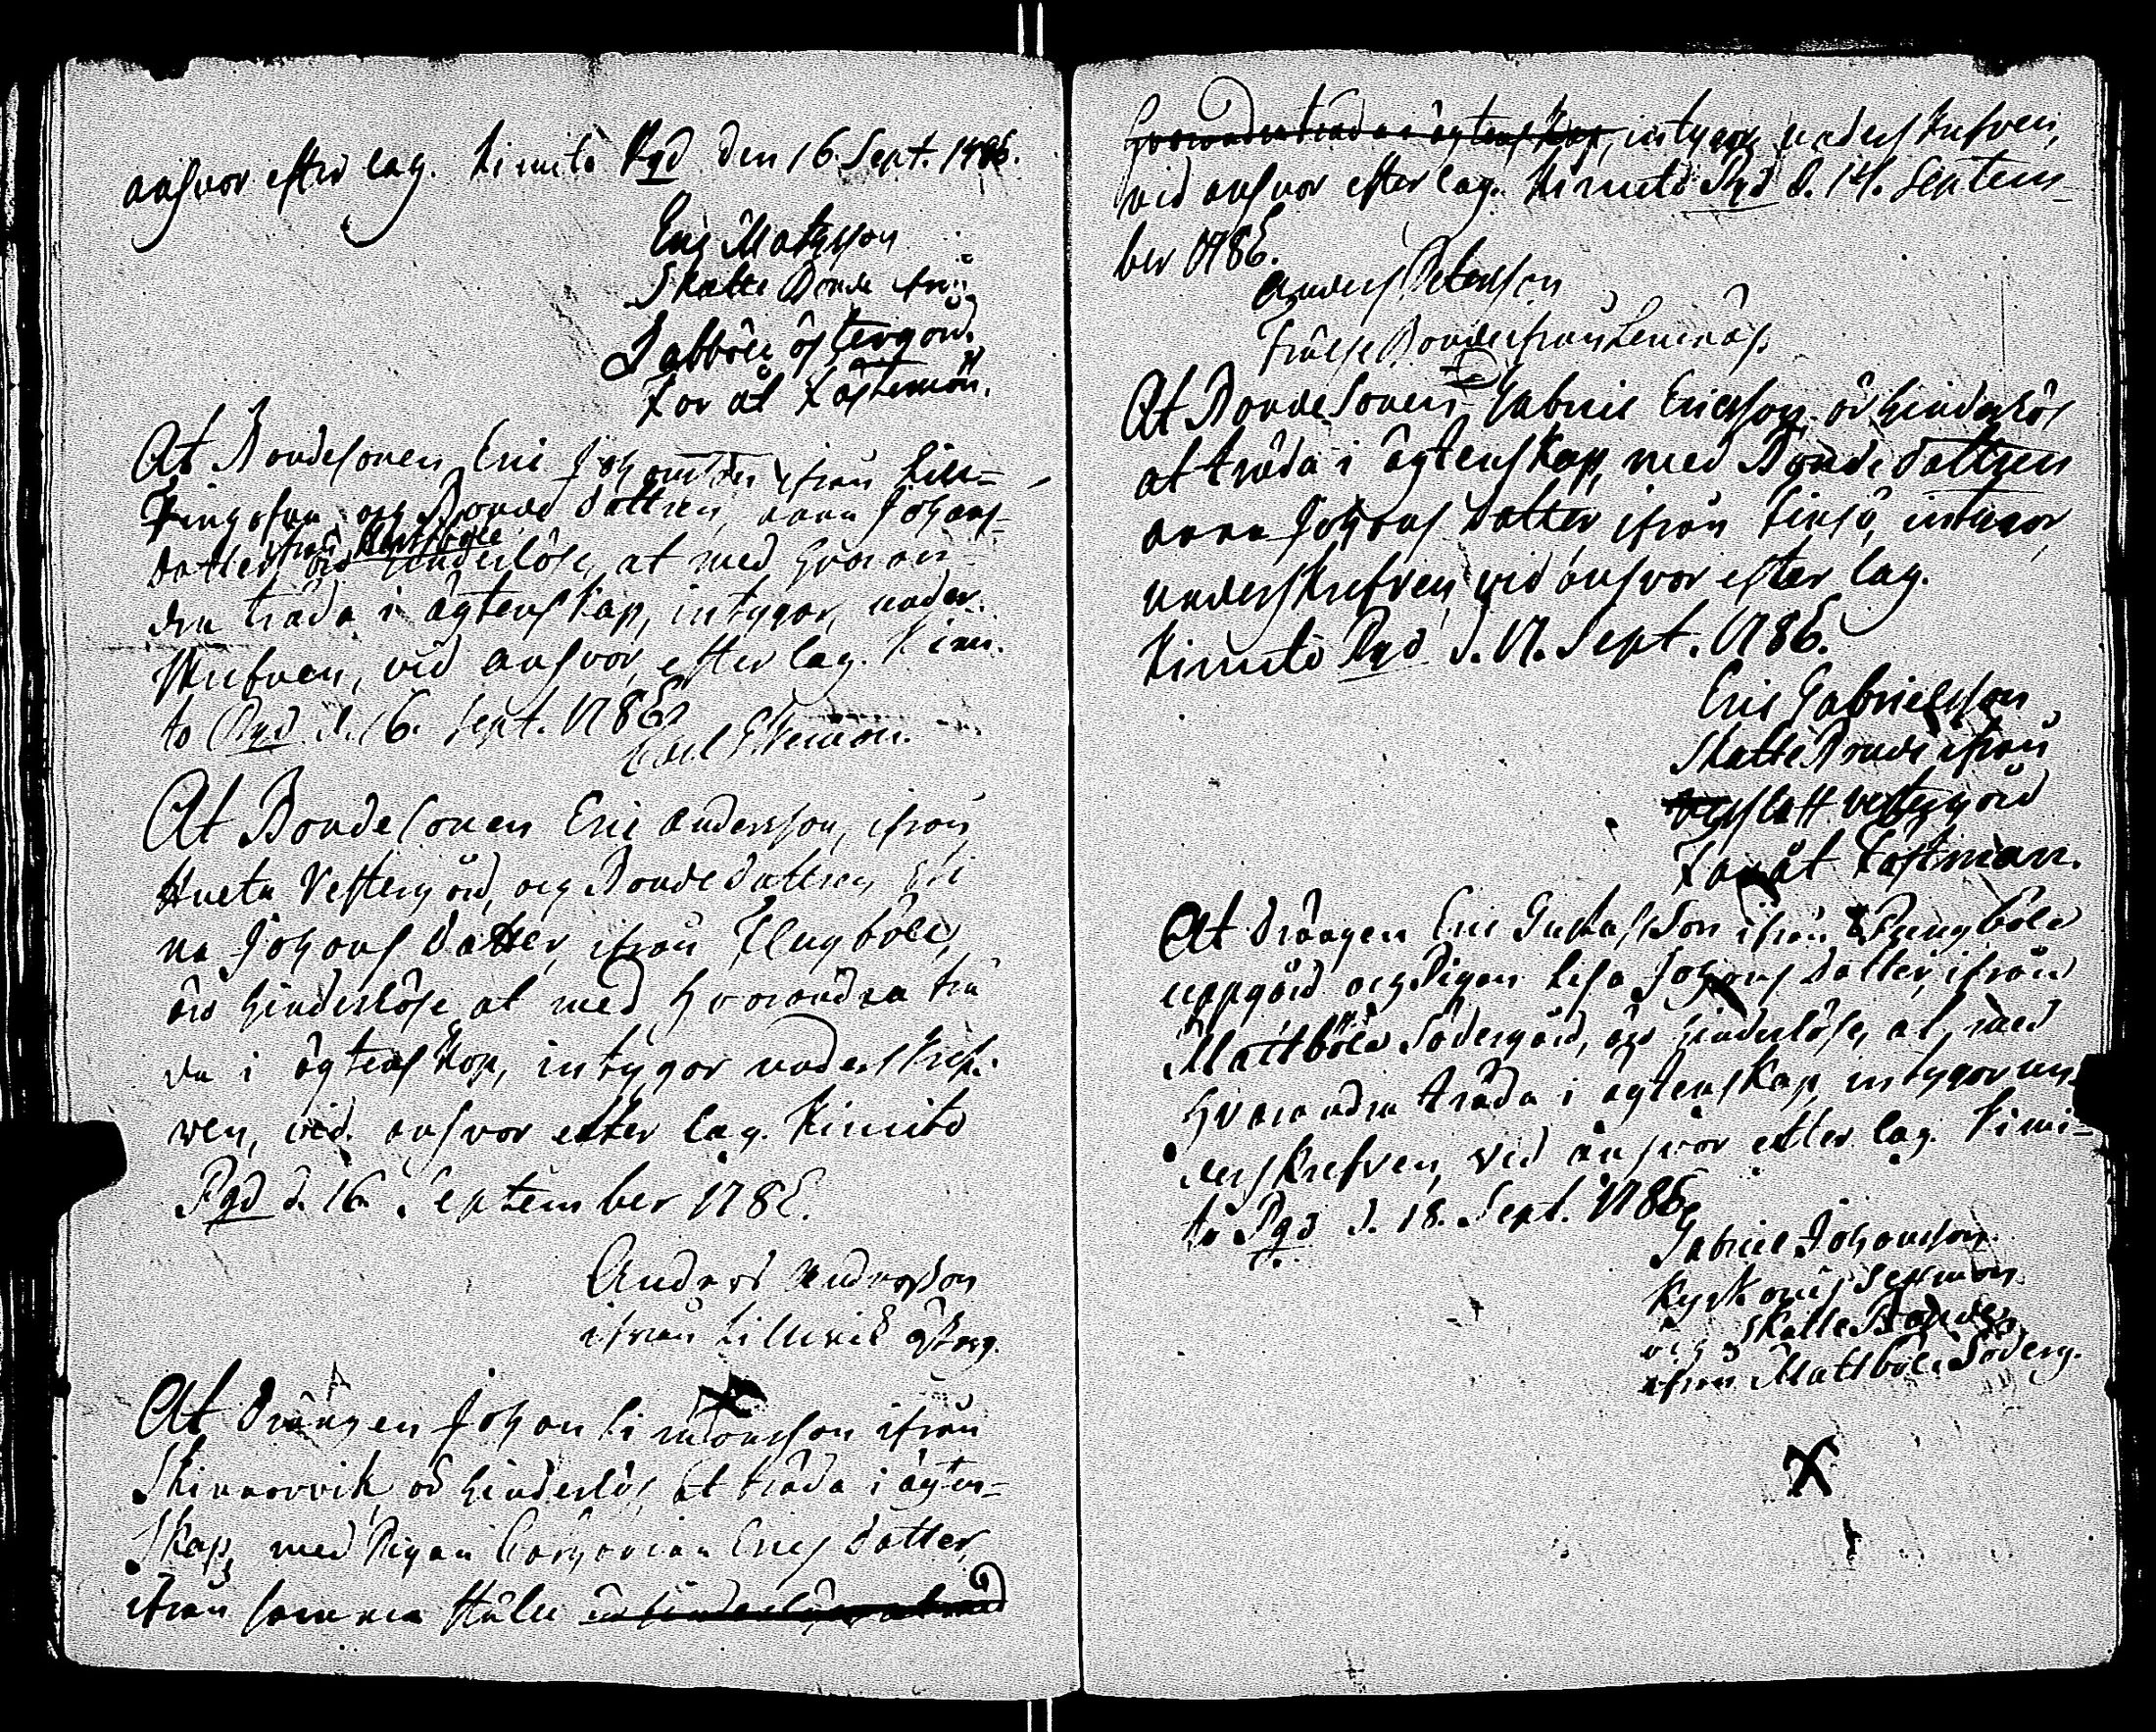 answar efter lag. Kimito Pgd den 16 Sept. 1786.
Eric Matsson
Skatte Bonde ifrån
Jabböle östergård.
For åt Kastman.
At Bondesonen Eric Johansson ifrån Lill-
och Bonde dottren, Anna Johans-
ifrån
dotter äro hinderlöse, at med hvaran-
dra träda i ägtenskap, intygar, under-
skrefven, vid answar, efter lag. Kimi-
to Pgd d. 16. Sept. 1786.
Carl
At Bondesonen Eric Andersson, ifrån
Hueta Vestergård, och Bonde dottren Eli
na Johans dotter, ifrån Flugböle,
äro hinderlöse at med hvarandra trä
da i ägtenskap, intygar underskref-
wen, vid answar efter lag. Kimito
Pgd d. 16 September 1786.
Anders Andersson
ifrån Lillvik österg.
At Drängen Johan Simonsson ifrån
Skinarvik, är hinderlös, at träda i ägten-
skap, med Pigan Catharina Erics dotter,
ifrån samma ställe äro hinderlöse at med
hvarandra träda i ägtenskap, intygar underskrefven,
vid answar efter lag. Kimito Pgd d. 14. Septem-
ber 1786.
Anders Petersson
Frälse Bonde ifrån Lemnäs.
At Bonde Sonen Gabriel Ericsson är hinderlös
at träda i ägtenskap, med Bonde dottren
Anna Johans dotter ifrån Finsjö, intygar,
underskrefven, vid answar efter lag.
Kimito Pgd d. 17. Sept. 1786.
Eric Gabrielsson
Skatte Bonde ifrån
vestergård
For åt Kastman.
At Drängen Eric Gustafsson ifrån Pungböle
uppgård och Pigan Lisa Johans dotter, ifrån
Mattböle Södergård, äro hinderlöse, at med
hvarandra träda i ägtenskap, intygar un-
derskrefven, vid answar efter lag. Kimi-
to Pgd d. 18. Sept. 1786.
Gabriel Johansson.
Kyrkones Sexman
och Skatte Bonde
ifrån Mattböle Söderg.